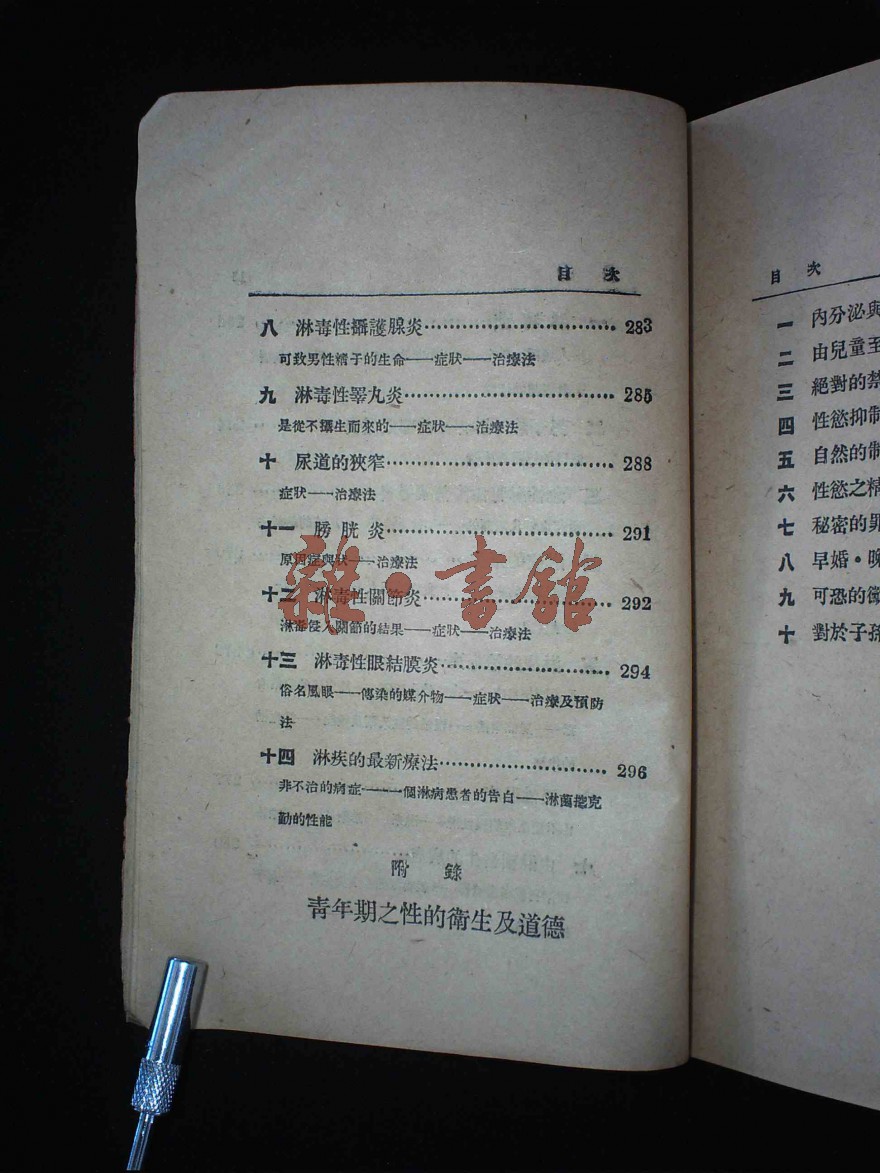 目 次
八 淋毒性攝護腺炎 283
可致男性精子的生命——症狀——治療法
九 淋毒性睪丸炎 285
是從不攝生而來的——症狀——治療法
十 尿道的狹窄 288
症狀——治療法
十一 膀胱炎 291
原因症與狀——治療法
十二 淋毒性關節炎 292
淋毒侵入關節的結果——症狀——治療法
十三 淋毒性眼結膜炎 294
俗名風眼——傳染的媒介物——症狀——治療及預防
法
十四 淋疾的最新療法 296
非不治的病症——一個淋病患者的告白——淋菌撻克
勳的性能
附 錄
青年期之性的衛生及道德
雜·書館
目 次
一 內分泌與
二 由兒童至
三 絕對的禁
四 性慾抑制
五 自然的制
六 性慾之精
七 秘密的罪
八 早婚·晚
九 可恐的黴
十 對於子孫